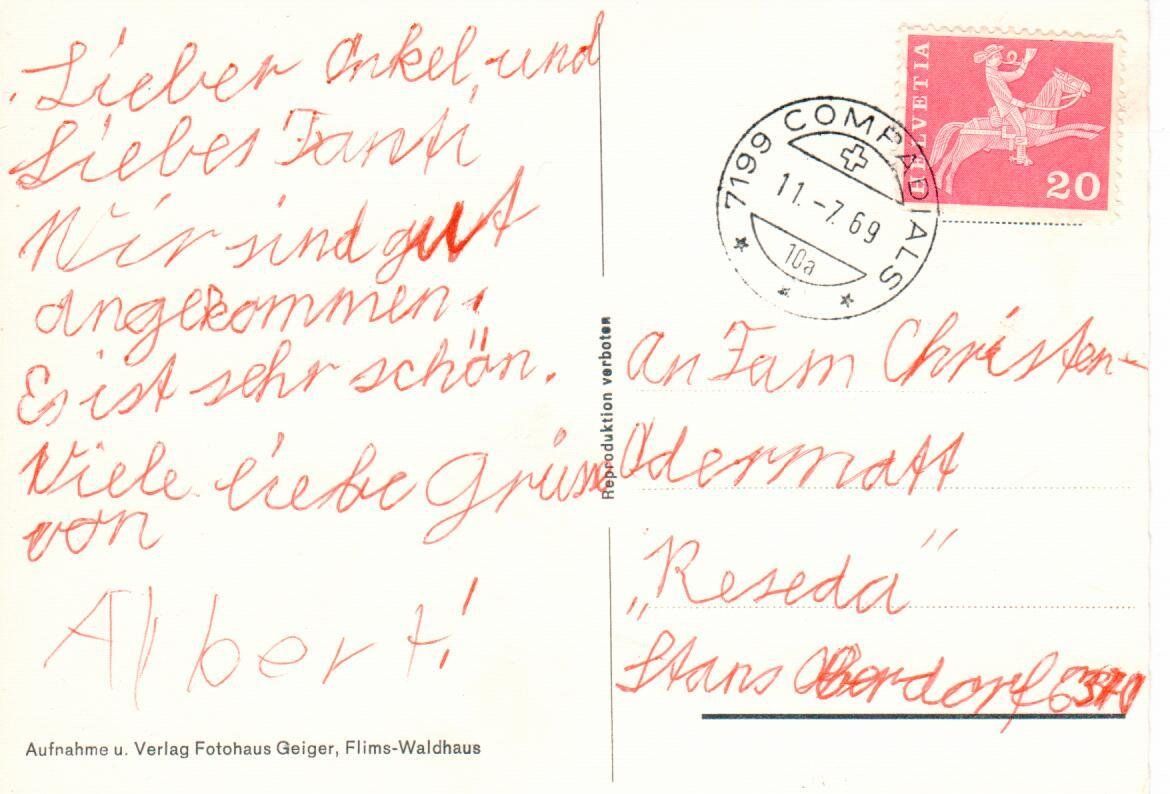 Lieber Onkel und
Liebes Tanti
Wir sind gut
angekommen.
Es ist sehr schön.
Viele liebe Grüsse
von
Albert!
Aufnahme u. Verlag Fotohaus Geiger, Flims-Waldhaus
Reproduktion verboten
HELVETIA
20
7199 COMPADIALS
11.-7.69
10a
An Fam Christen-
Odermatt
„Reseda"
Stans Oberdorf 6370